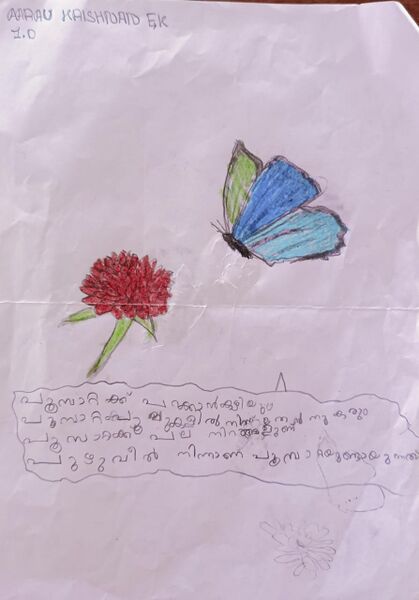 AARAV KRISHNAN EK
1.D
പൂമ്പാറ്റക്ക് പറക്കാൻ കഴിയും
പൂമ്പാറ്റ പൂവുകളിൽ നിന്ന് തേൻ നുകരും
പൂമ്പാറ്റക്ക് പല നിറങ്ങളുണ്ട്
പുഴുവിൽ നിന്നാണ് പൂമ്പാറ്റയുണ്ടായുന്നത്